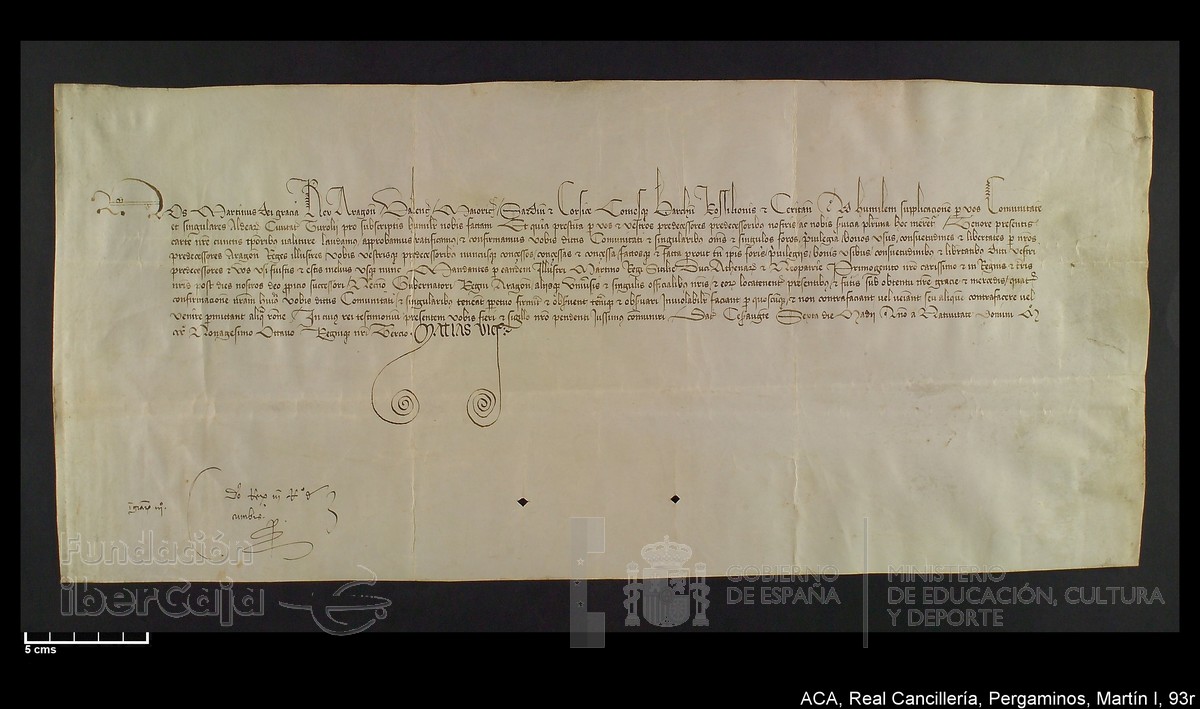 Nos Martinus dei gracia Rex Aragon Valenc Maioric Sardin & Corsice Comesq Barchn Rossilionis & Ceritan Ad humilem supplicacione p vos Comunitate
et singulares Aldear Civitat Turolij pro subscriptis humilr nobis factam Et quia prestita p vos & vestros predecessores predecessoribo nostris ac nobis suicia plima hoc meret Tenore presentis
carte nre cunctis tpribo valiture laudamo approbamus ratificamo & confirmamus vobis dictis Comunitati & singularibo oms & singulos foros privilegia bonos usus consuetudines & libertates p nros
predecessores Aragon Reges illustres vobis vestrisq predecessoribo concessos concessas & concessa factosq & facta prout in ipis foris privilegijs bonis usibus consuetudinibo & libertatibo dicti vestri
predecessores & vos usi fuistis & estis melius usq nunc Mandantes p eandem Illustri Martino Regi Sicilie Ducatuu Athenar & Neopatrie Primogenito nro carissimo & in Regnis & tris
nris post dies nostros deo ppicio successori Necno Gubernatori Regni Aragon alijsq Univsis & singulis officialibo nris & eor locatenentibo presentibo & futis sub obtentu nre gracie & mercedis quat
confirmacione nram huio vobis dictis Comunitati & singularibo teneat ppetuo firmit & observent teneriq & obsvari inviolabilr faciant p quoscuq & non contrafaciant vel veniant seu alique contrafacere vel
venire pmittant aliq rone In cuius rei testimoniu presentem vobis fieri & sigillo nro pendenti iussimo comuniri Dat Cesaugte Sexta die Madij Ano a Nativitate Domini M
CCC Nonagesimo Octavo Regniq nri Tercio Matias vice
Dns Rex
in gciar iij
5 cms
Fundación
iberCaja
GOBIERNO
DE ESPAÑA
MINISTERIO
DE EDUCACIÓN, CULTURA
Y DEPORTE
ACA, Real Cancillería, Pergaminos, Martín I, 93r